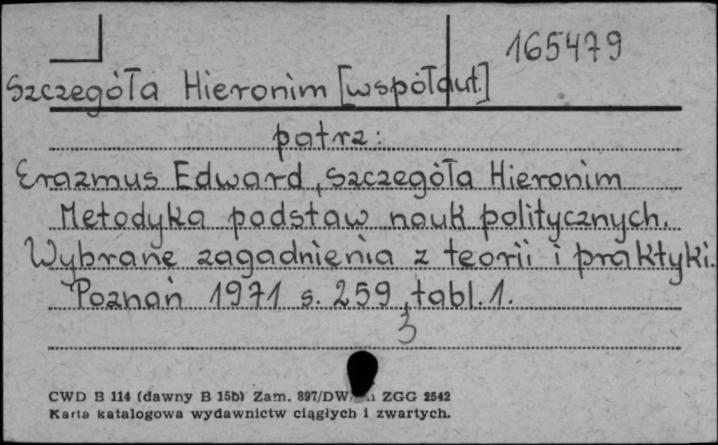 165479
Szczegóła Hieronim [współaut.]
patrz:
Erazmus Edward, Szczegóła Hieronim
Metodyka podstaw nauk politycznych.
Wybrane zagadnienia z teorii i praktyki.
Poznań 1971 s. 259, tabl. 1.
3
CWD B 114 (dawny B 15b) Zam. 897/DW ZGG 2542
Karta katalogowa wydawnictw ciągłych i zwartych.